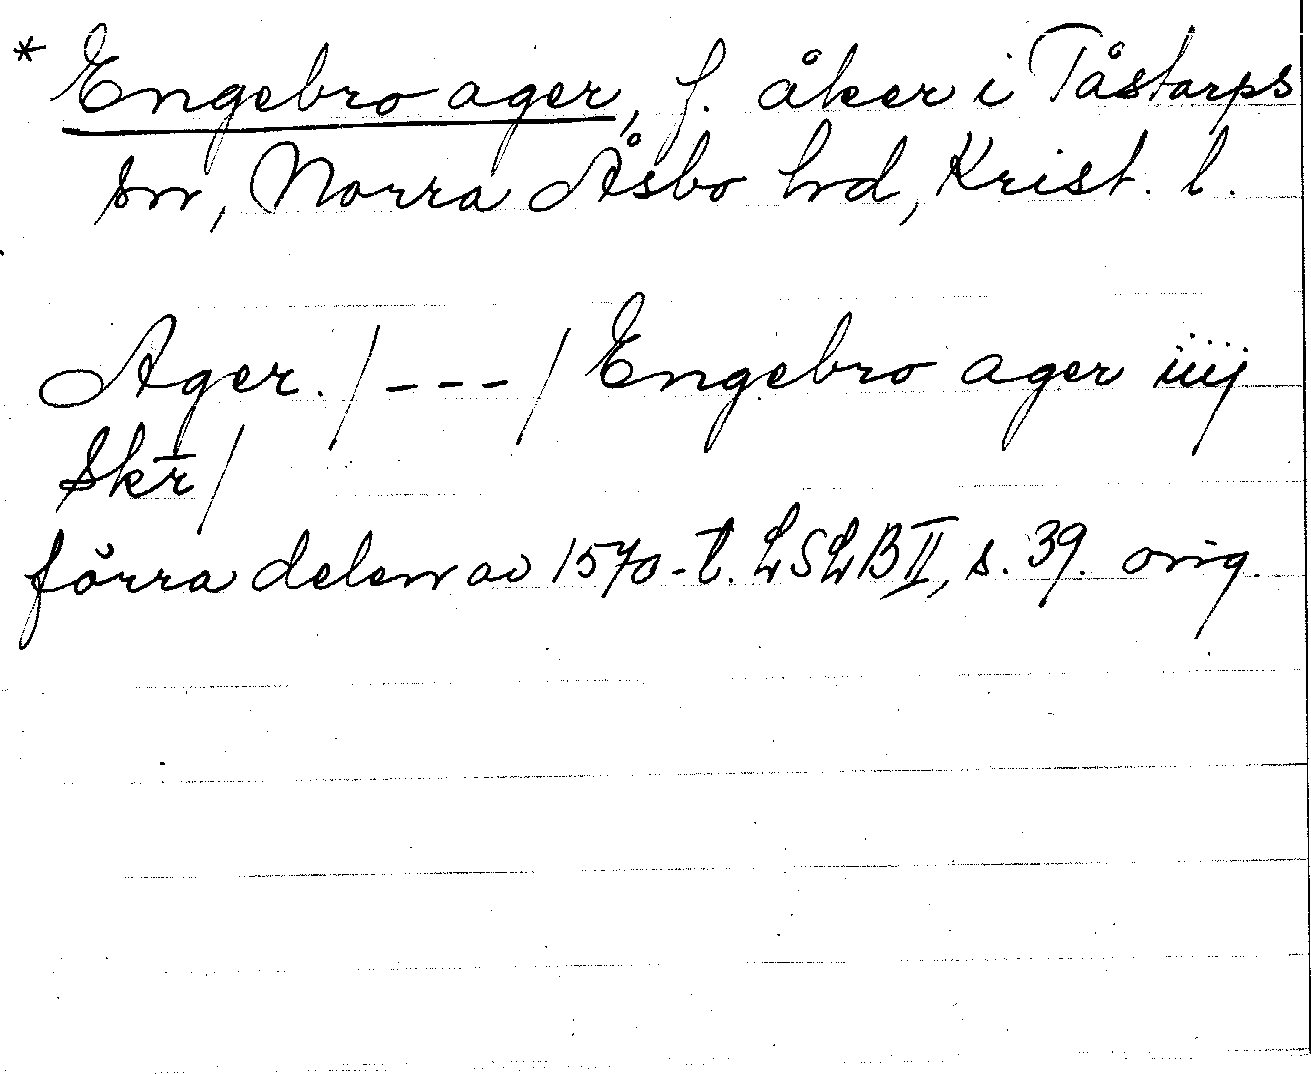 * Engebro ager, f. åker i Tåstarps
sn, Norra Åsbo hd, Krist. l.
Ager. /---/ Engebro ager iiij
Skr̄/
förra delen av 1570-t. LSLB II, s. 39. orig.